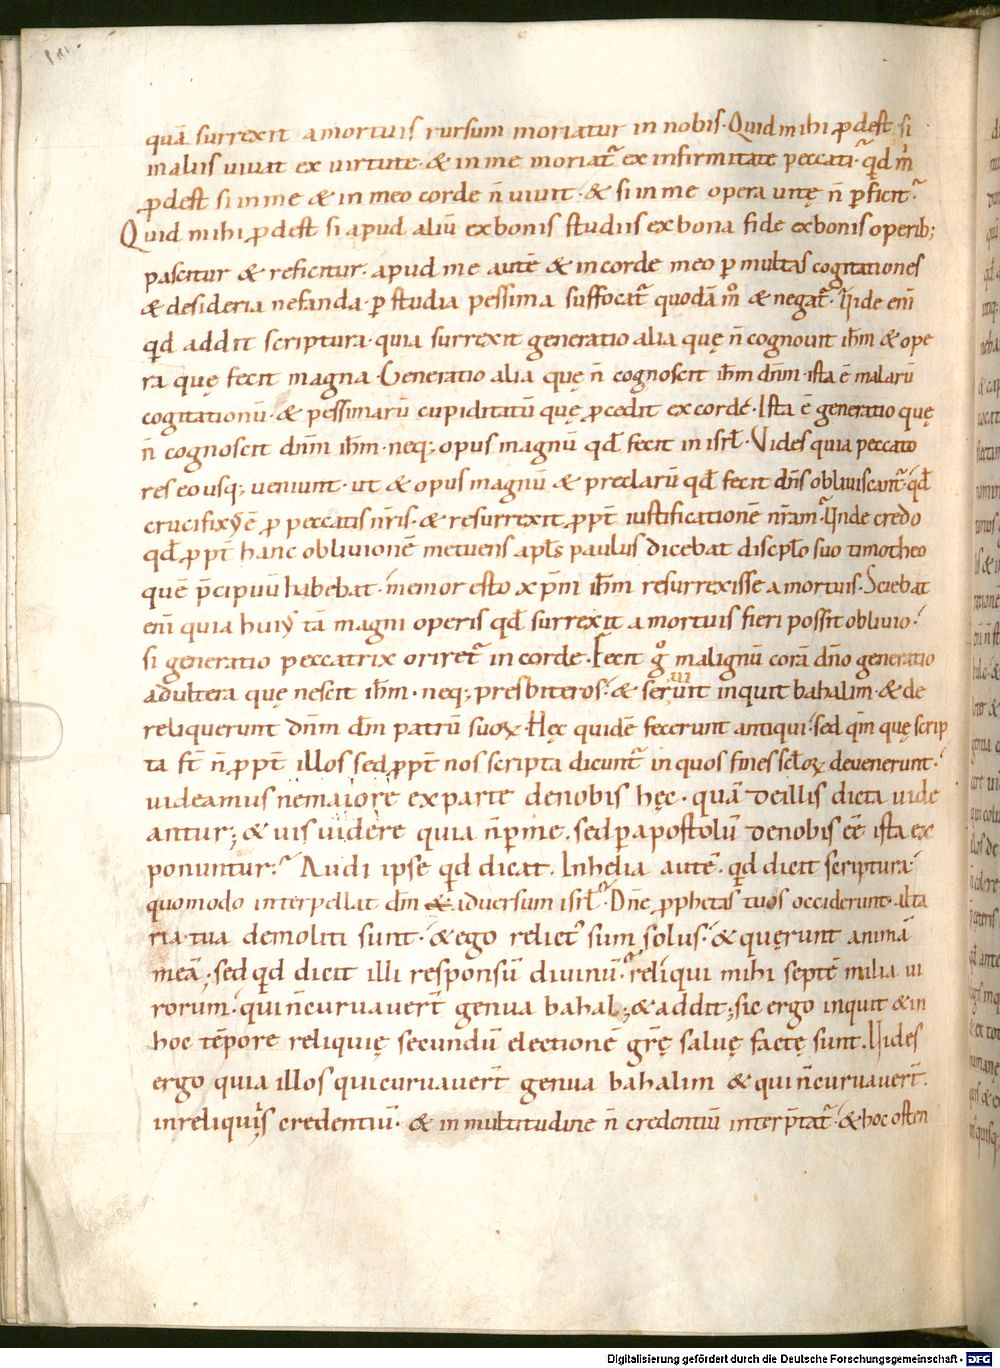 quā surrexit a mortuis rursum moriatur in nobis· Quid mihi ꝓdest si
in aliis vivat ex virtute· & in me moriat᷑ ex infirmitate peccati· qd̄ m̄
ꝓdest si in me & in meo corde n̄ vivit· & si in me opera vitę n̄ ꝑficit·
Quid mihi ꝓdest si apud aliū ex bonis studiis ex bona fide ex bonis operib;
pascitur & reficitur· apud me autē & in corde meo ꝑ multas cogitationes
& desideria nefanda· ꝑ studia pessima suffocat᷑ quodā m̊ & negat᷑· Unde eni
qd̄ addit scriptura· quia surrexit generatio alia quę n̄ cognovit ihm̄ & ope
ra quę fecit magna· Generatio alia quę n̄ cognoscit ihm̄ dnm̄· ista ē malarū
cogitationū· & pessimarū cupiditatū quę ꝓcedit ex corde· Ista ē generatio quę
n̄ cognoscit dnm̄ ihm̄· neq; opus magnū qd̄ fecit in isrl̄· Vides quia peccato
res eo usq; veniunt· ut & opus magnū & preclarū qd̄ fecit dn̄s obliviscant᷑· qd̄
crucifixꝰ ē ꝓ peccatis nr̄is· & resurrexit ꝓpt̄ iustificationē nr̄am· Unde credo
qd̄ ꝓpt̄ hanc oblivionē metuens apl̄s paulus dicebat discipl̄o suo timotheo
quē p̄cipuū habebat· memor esto xp̄m ihm̄ resurrexisse a mortuis· Sciebat
eni quia huiꝰ tā magni operis qd̄ surrexit a mortuis fieri possit oblivio·
si generatio peccatrix oriret᷑ in corde· Fecit g̊ malignū corā dn̄o generatio
adultera quę nescit ihm̄· neq; presbiteros· & seruiit inquit bahalim· & de
reliquerunt dnm̄ dm̄ patrū suoꝝ· Hęc quidē fecerunt antiqui· sed qm̄ quę scrip
ta st̄ n̄ ꝓpt̄ illos sed ꝓpt̄ nos scripta dicunt᷑ in quos fines scl̄oꝝ devenerunt·
videamus ne maiore ex parte de nobis hęc· quā de illis dicta vide
antur; & vis videre quia n̄ ꝑ me· sed ꝑ apostolū de nobis eē ista ex
ponuntur· Audi ipse qd̄ dicat· In helia autē· qd̄ dicit scriptura·
quomodo interpellat dm̄ adversum isrl̄· Dn̄e ꝓphetas tuos occiderunt· alta
ria tua demoliti sunt· & ego relict᷑ sum solus· & quęrunt animā
meā· sed qd̄ dicit illi responsū divinū· reliqui mihi septē milia vi
rorum· qui n̄ curvaver̄t genua bahal; & addit; sic ergo inquit & in
hoc tēpore reliquię secundū electionē gr̄ę salvę factę sunt· Vides
ergo quia illos qui curvaver̄t genua bahalim & qui n̄ curvaver̄t·
in reliquiis credentiū· & in multitudine n̄ credentiū interp̄tat᷑· & hoc osten
Digitalisierung gefördert durch die Deutsche Forschungsgemeinschaft - DFG